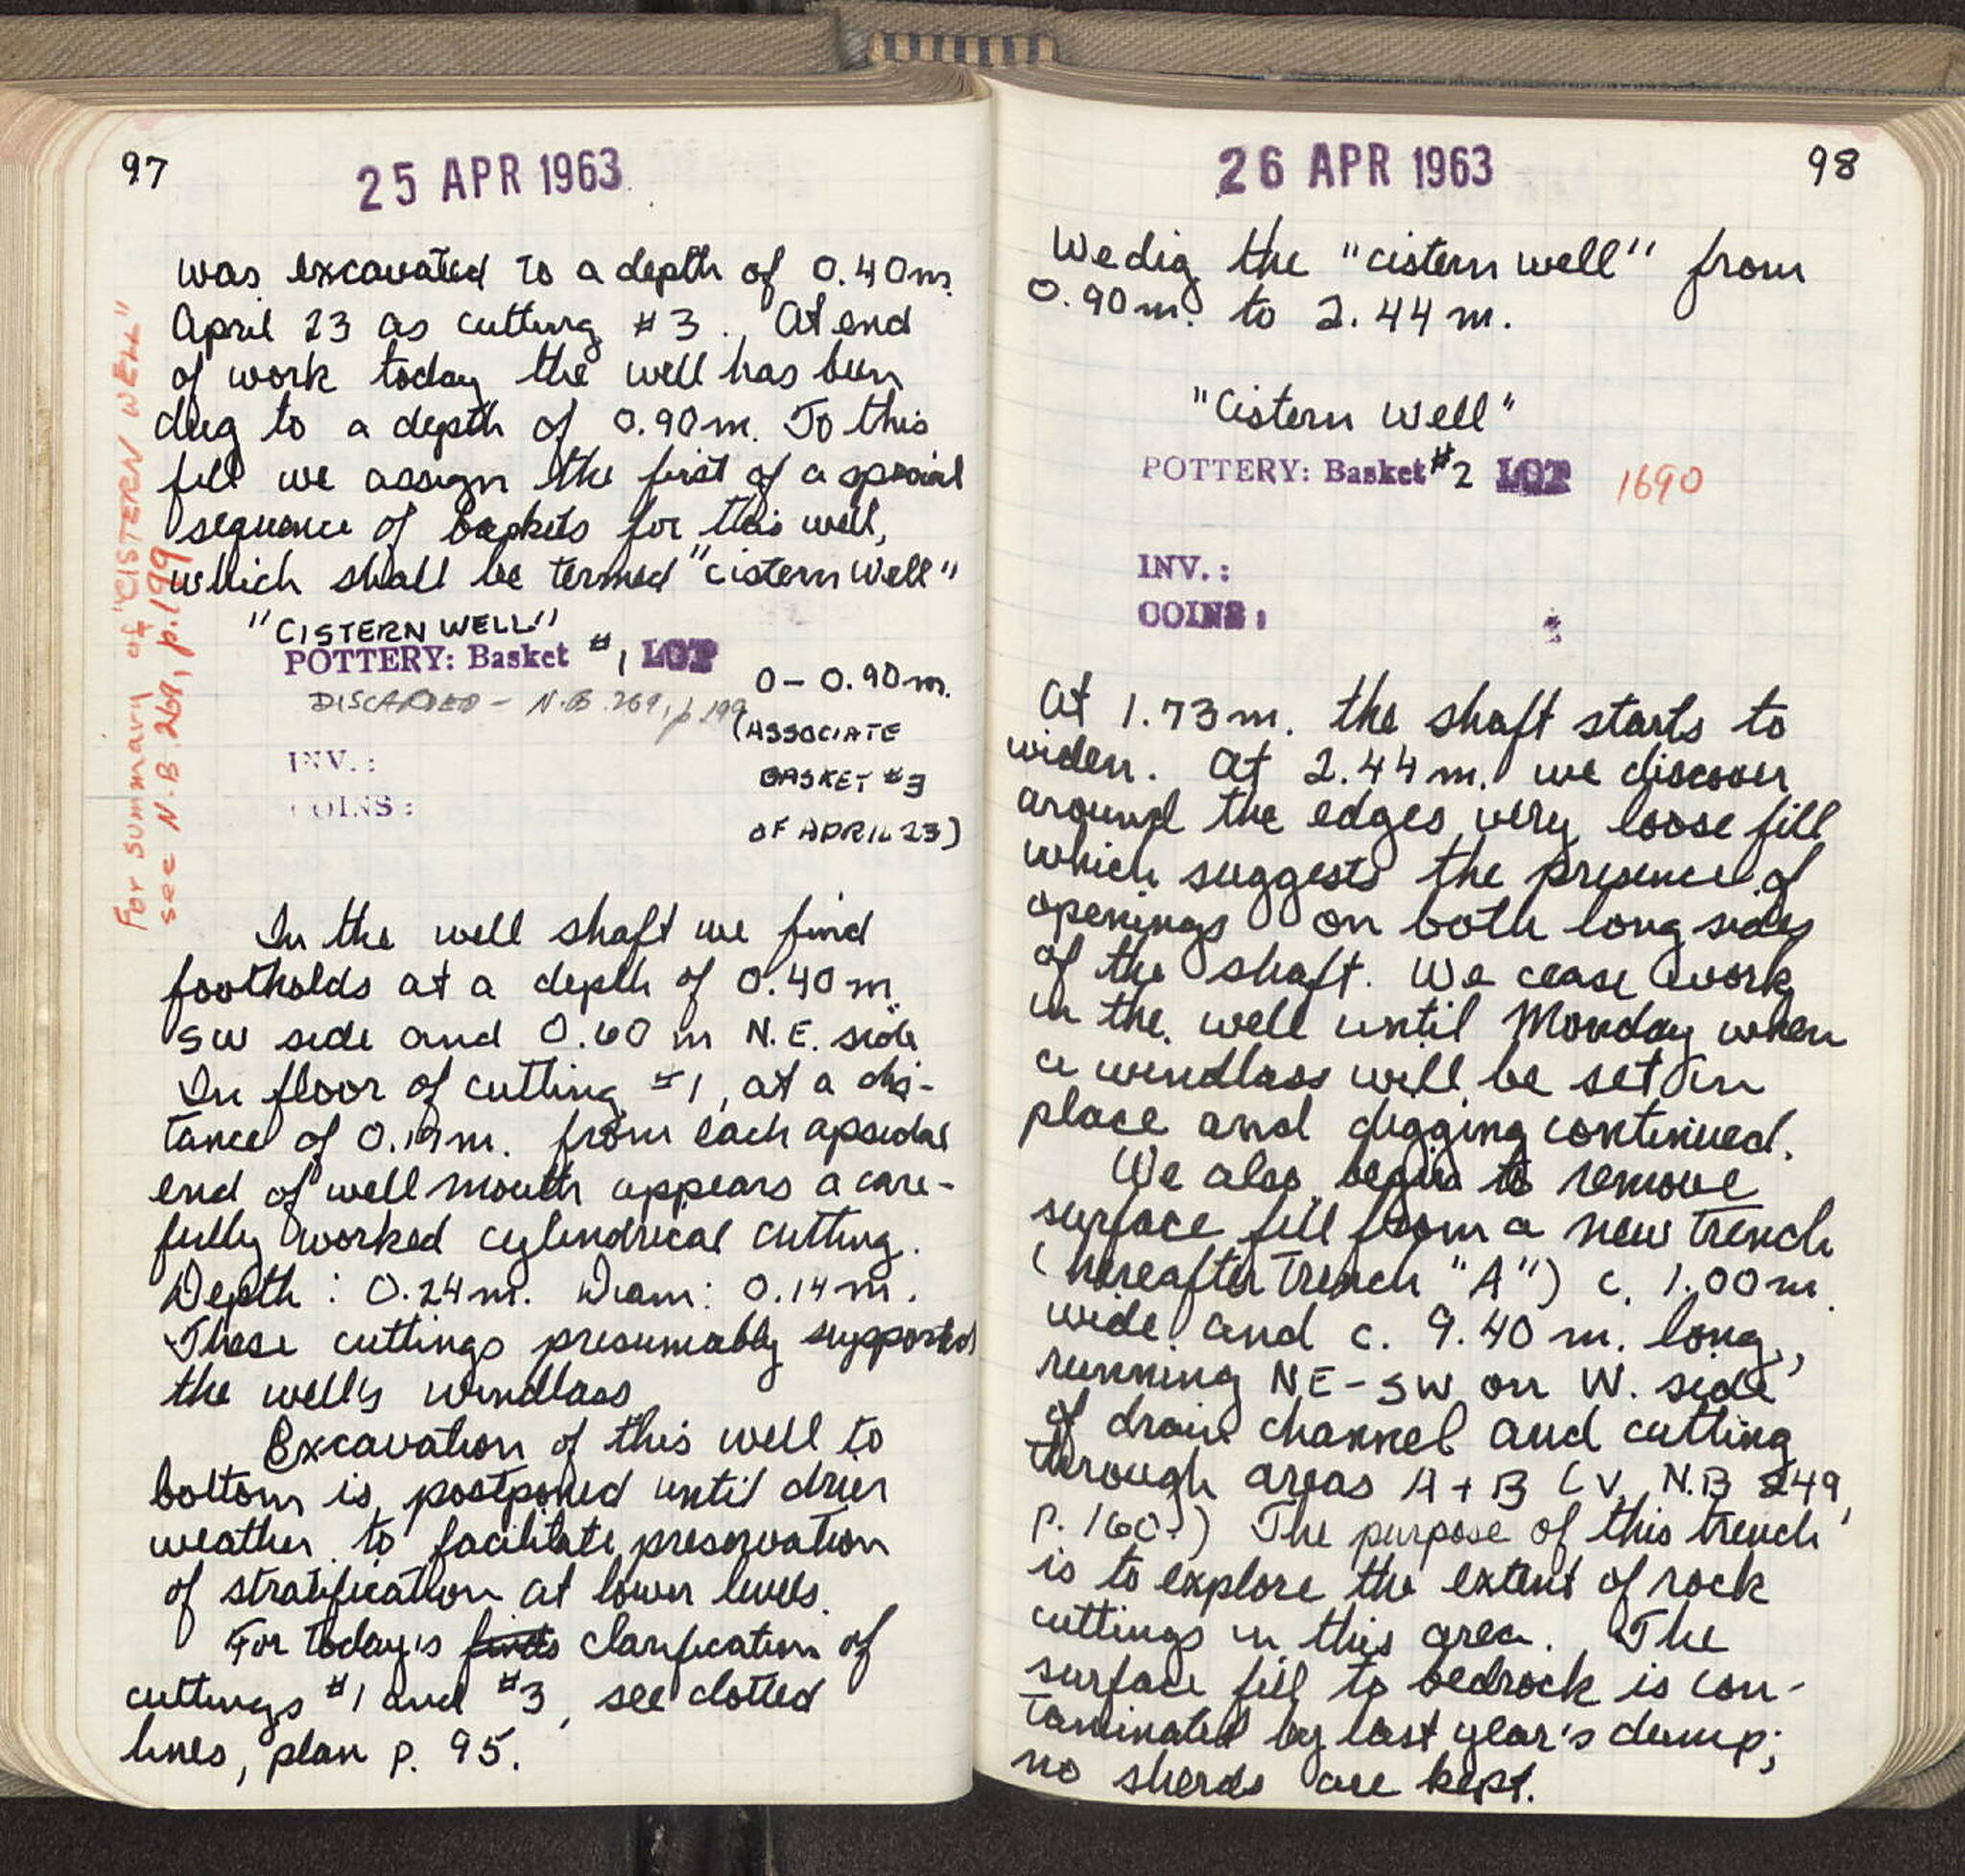 97
25 APR 1963
was excavated to a depth of 0.40m.
April 23 as cutting #3. At end
of work today the well has been
dug to a depth of 0.90m. To this
fill we assign the first of a special
sequence of baskets for this well,
which shall be termed "cistern well"
"CISTERN WELL"
POTTERY: Basket #1 LOT
0-0.90m.
DISCARDED - N.B. 269, p 199
(ASSOCIATE
INV.:
BASKET #3
COINS:
OF APRIL 23)
For summary of "CISTERN WELL"
see N.B. 269, p. 199
In the well shaft we find
footholds at a depth of 0.40 m.
SW side and 0.60 m N.E. side
In floor of cutting #1, at a dis-
tance of 0.19m. from each apsidal
end of well mouth appears a care-
fully worked cylindrical cutting.
Depth: 0.24m. Diam: 0.14m.
These cuttings presumably supported
the well's windlass
Excavation of this well to
bottom is postponed until drier
weather to facilitate preservation
of stratification at lower levels.
For today's finds clarification of
cuttings #1 and #3, see dotted
lines, plan p. 95.
26 APR 1963
98
We dig the "cistern well" from
0.90m. to 2.44m.
"Cistern Well"
POTTERY: Basket #2 LOT 1690
INV.:
COINS:
At 1.73m. the shaft starts to
widen. At 2.44m. we discover
around the edges very loose fill
which suggests the presence of
openings on both long sides
of the shaft. We cease work
in the well until Monday when
a windlass will be set in
place and digging continued.
We also begin to remove
surface fill from a new trench
(hereafter Trench "A") c. 1.00m.
wide and c. 9.40 m. long,
running NE-SW on W. side
of drain channel and cutting
through areas A + B (v. N.B 249,
p. 160.) The purpose of this trench
is to explore the extent of rock
cuttings in this area. The
surface fill to bedrock is con-
taminated by last year's dump;
no sherds are kept.